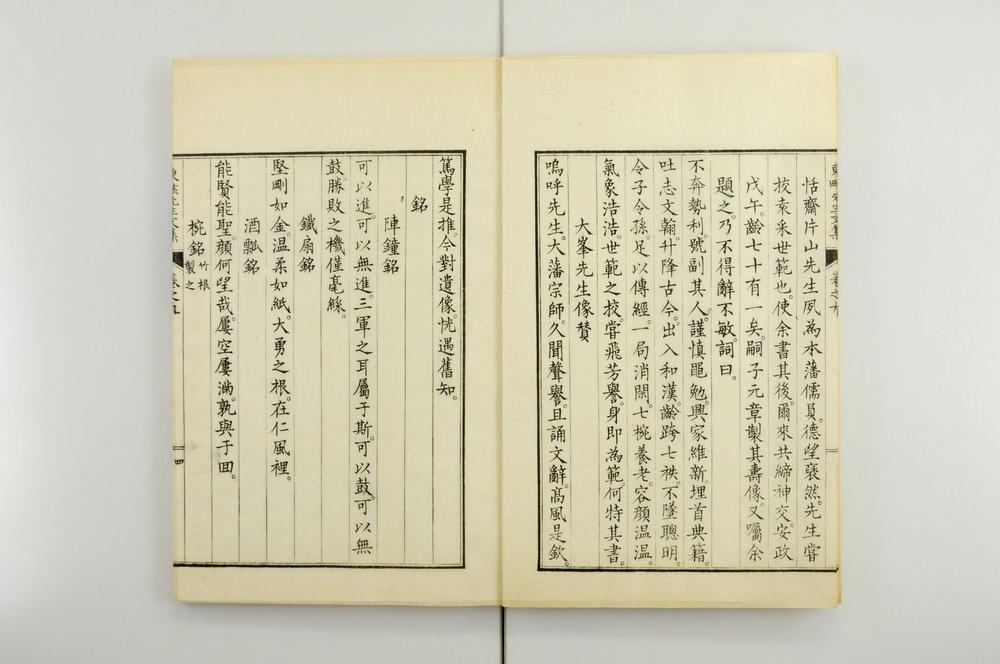 恬齋片山先生夙為本藩儒員。德望裒然。先生嘗
校袁釆世範也。使余書其後。爾來共締神交。安政
戊午。齡七十有一矣。嗣子元章製其壽像。又囑余
題之。乃不得辭不敏。詞曰。
不奔勢利。號副其人。謹慎黽勉。興家維新。埋首典籍。
吐志文翰。升降古今。出入和漢。齡跨七秩。不墜聰明。
令子令孫。足以傳經。一局消閑。七椀養老。容顏温温。
氣象浩浩。世範之校。嘗飛芳譽。身即為範。何特其書。
大峯先生像贊
嗚呼先生。大藩宗師。久聞聲譽。且誦文辭。高風是欽。
篤學是推。今對遺像。恍遇舊知。
銘
陣鐘銘
可以進。可以無進。三軍之耳屬于斯。可以鼓。可以無
鼓。勝敗之機僅毫絲。
鐵扇銘
堅剛如金。温柔如紙。大勇之根。在仁風裡。
酒瓢銘
能賢能聖。顏何望哉。屢空屢滿。孰與于回。
椀銘 竹根製之
卷之九
四